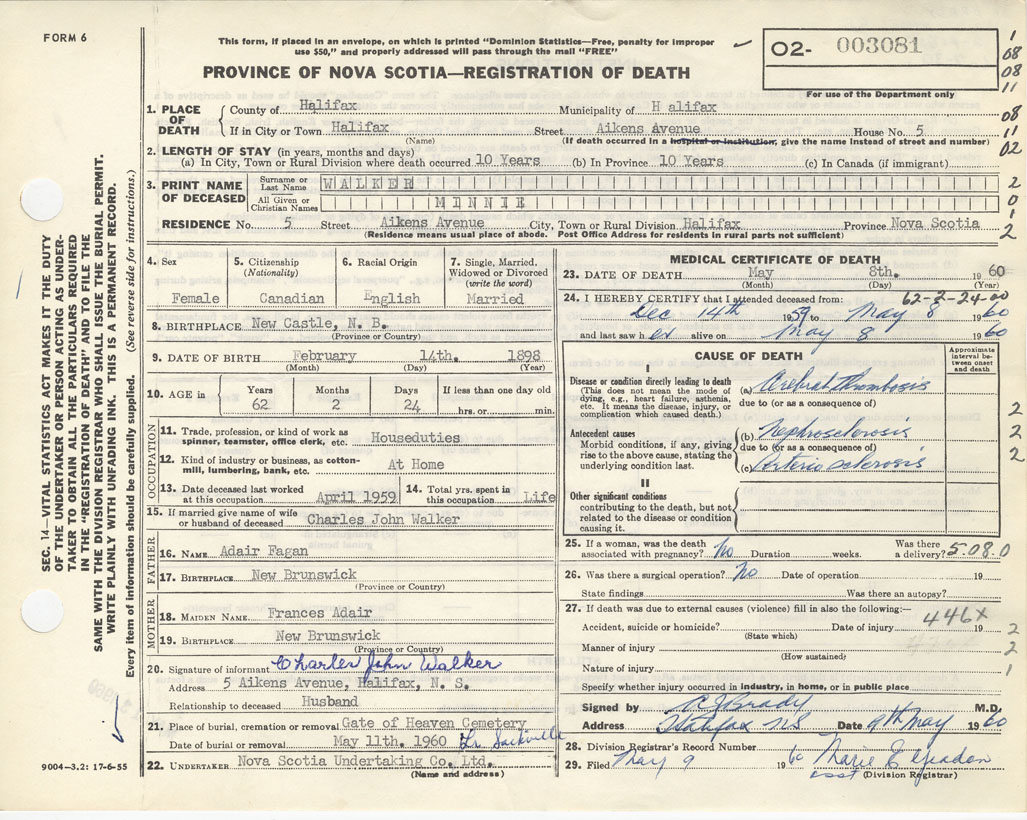 FORM 6
This form, if placed in an envelope, on which is printed "Dominion Statistics—Free, penalty for improper
use $50," and properly addressed will pass through the mail "FREE"
PROVINCE OF NOVA SCOTIA—REGISTRATION OF DEATH
02- 003081
For use of the Department only
1
08
08
11
08
11
02
2
0
2
1. PLACE OF DEATH
County of Halifax Municipality of H alifax
If in City or Town Halifax Street Aikens Avenue House No. 5
(Name) (If death occurred in a hospital or institution, give the name instead of street and number)
2. LENGTH OF STAY (in years, months and days)
(a) In City, Town or Rural Division where death occurred 10 Years (b) In Province 10 Years (c) In Canada (if immigrant)
3. PRINT NAME OF DECEASED
Surname or Last Name WALKER
All Given or Christian Names MINNIE
RESIDENCE No. 5 Street Aikens Avenue City, Town or Rural Division Halifax Province Nova Scotia
(Residence means usual place of abode. Post Office Address for residents in rural parts not sufficient)
4. Sex
Female
5. Citizenship
(Nationality)
Canadian
6. Racial Origin
English
7. Single, Married, Widowed or Divorced
(write the word)
Married
8. BIRTHPLACE New Castle, N. B.
(Province or Country)
9. DATE OF BIRTH February 14th. 1898
(Month) (Day) (Year)
10. AGE in
Years Months Days If less than one day old
62 2 24 hrs. or min.
OCCUPATION
11. Trade, profession, or kind of work as
spinner, teamster, office clerk, etc. Houseduties
12. Kind of industry or business, as cotton-
mill, lumbering, bank, etc. At Home
13. Date deceased last worked
at this occupation April 1959
14. Total yrs. spent in
this occupation Life
15. If married give name of wife
or husband of deceased Charles John Walker
FATHER
16. NAME Adair Fagan
17. BIRTHPLACE New Brunswick
(Province or Country)
MOTHER
18. MAIDEN NAME Frances Adair
19. BIRTHPLACE New Brunswick
(Province or Country)
20. Signature of informant Charles John Walker
Address 5 Aikens Avenue, Halifax, N. S.
Relationship to deceased Husband
21. Place of burial, cremation or removal Gate of Heaven Cemetery
Date of burial or removal May 11th. 1960 Lr. Sackville
22. UNDERTAKER Nova Scotia Undertaking Co. Ltd.
(Name and address)
MEDICAL CERTIFICATE OF DEATH
23. DATE OF DEATH May 8th. 1960
(Month) (Day) (Year)
62-2-24-00
24. I HEREBY CERTIFY that I attended deceased from:
Dec 14th 1959 to May 8 1960
and last saw h er alive on May 8 1960
CAUSE OF DEATH
Approximate interval between onset and death
I
Disease or condition directly leading to death
(This does not mean the mode of
dying, e.g., heart failure, asthenia,
etc. It means the disease, injury, or
complication which caused death.)
(a) Cerebral thrombosis
due to (or as a consequence of)
Antecedent causes
Morbid conditions, if any, giving
rise to the above cause, stating the
underlying condition last.
(b) Nephrosclerosis
due to (or as a consequence of)
(c) Arterio sclerosis
2
2
2
II
Other significant conditions
contributing to the death, but not
related to the disease or condition
causing it.
25. If a woman, was the death
associated with pregnancy? No Duration weeks. Was there a delivery? 5.08.0
26. Was there a surgical operation? No Date of operation 19
State findings Was there an autopsy?
27. If death was due to external causes (violence) fill in also the following:—
446x
Accident, suicide or homicide? Date of injury 19
(State which)
2
Manner of injury
(How sustained)
2
Nature of injury
1
Specify whether injury occurred in industry, in home, or in public place
Signed by Brady M.D.
Address Halifax NS Date 9th May 1960
28. Division Registrar's Record Number
29. Filed May 9 1960 Marie E
asst (Division Registrar)
SEC. 14—VITAL STATISTICS ACT MAKES IT THE DUTY
OF THE UNDERTAKER OR PERSON ACTING AS UNDER-
TAKER TO OBTAIN ALL THE PARTICULARS REQUIRED
IN THE "REGISTRATION OF DEATH" AND TO FILE THE
SAME WITH THE DIVISION REGISTRAR WHO SHALL ISSUE THE BURIAL PERMIT.
WRITE PLAINLY WITH UNFADING INK. THIS IS A PERMANENT RECORD.
Every item of information should be carefully supplied. (See reverse side for instructions.)
9004-3.2: 17-6-55